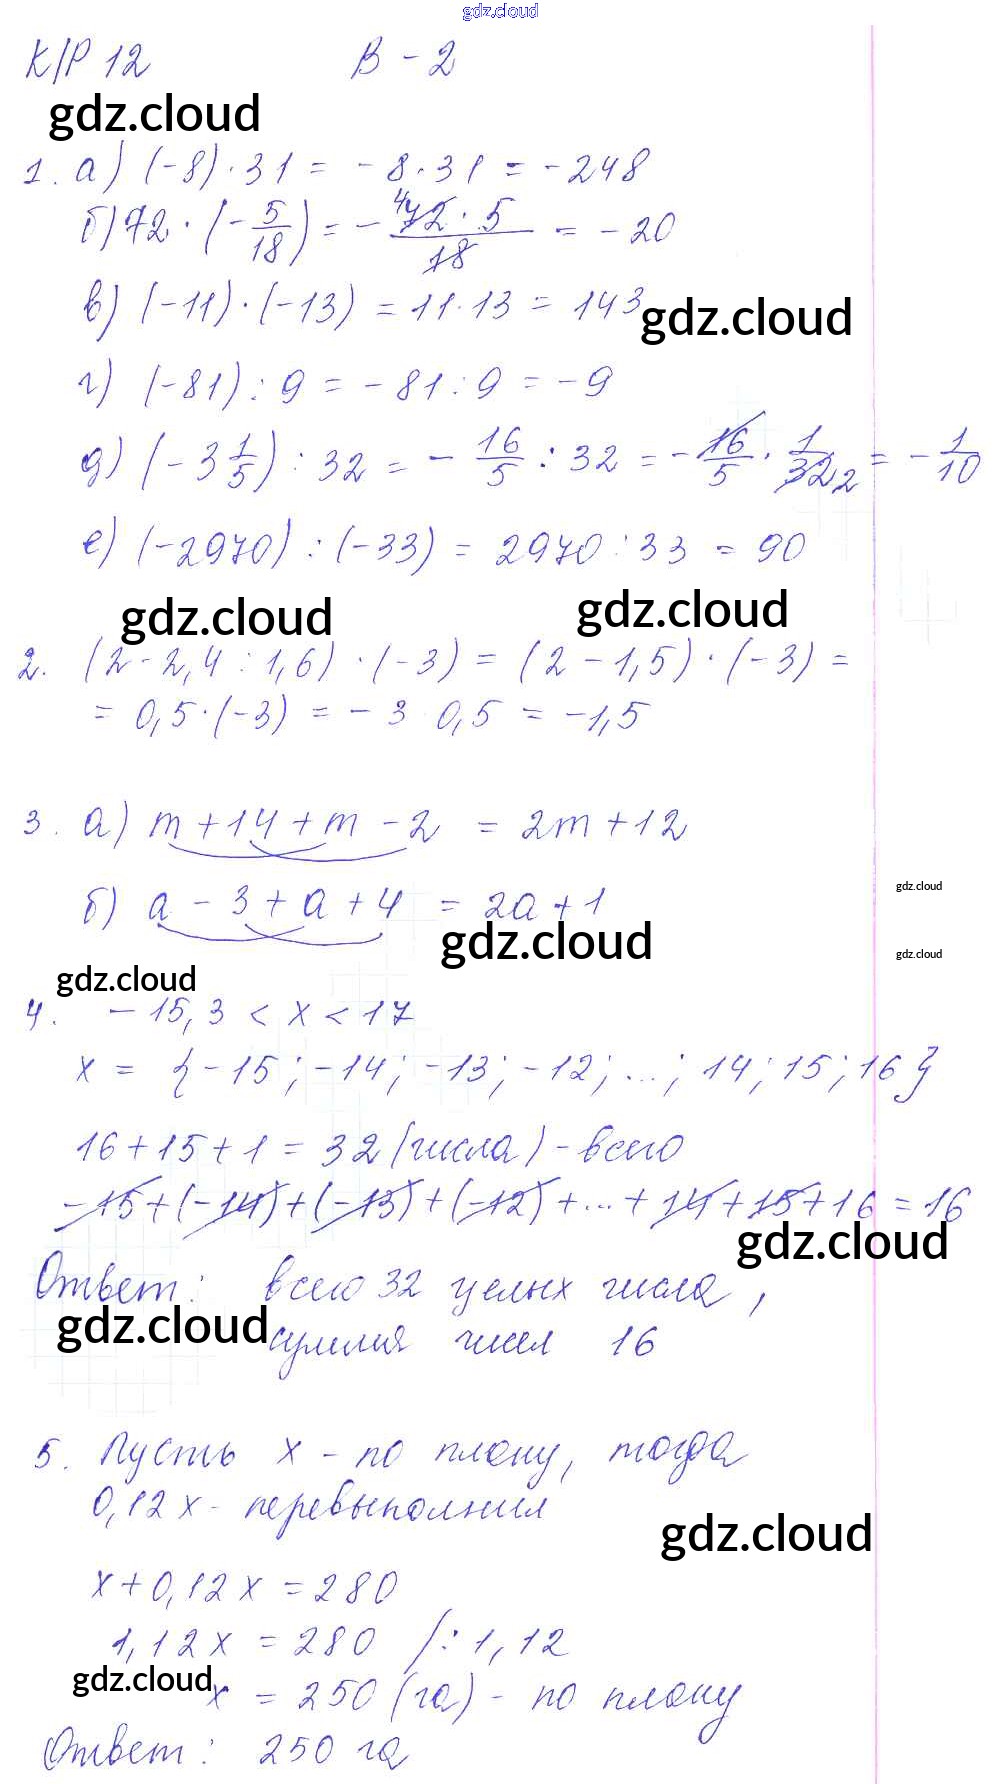 gdz.cloud
К/Р 12 В - 2
gdz.cloud
1. а) (-8) · 31 = - 8 · 31 = - 248
б) 72 · (- 5/18) = - 72 · 5 / 18 = - 20
4
в) (-11) · (-13) = 11 · 13 = 143
gdz.cloud
г) (-81) : 9 = - 81 : 9 = - 9
д) (- 3 1/5) : 32 = - 16/5 : 32 = - 16/5 · 1/32 2 = - 1/10
е) (-2970) : (-33) = 2970 : 33 = 90
gdz.cloud gdz.cloud
2. (2 - 2,4 : 1,6) · (-3) = (2 - 1,5) · (-3) =
= 0,5 · (-3) = - 3 · 0,5 = - 1,5
3. а) m + 14 + m - 2 = 2m + 12
gdz.cloud
б) a - 3 + a + 4 = 2a + 1
gdz.cloud
gdz.cloud
gdz.cloud
4. - 15,3 < x < 17
x = {-15; -14; -13; -12; ...; 14; 15; 16}
16 + 15 + 1 = 32 (числа) - всего
-15 + (-14) + (-13) + (-12) + ... + 14 + 15 + 16 = 16
gdz.cloud
Ответ: всего 32 целых числа,
gdz.cloud
сумма чисел 16
5. Пусть x - по плану, тогда
0,12x - перевыполнил
gdz.cloud
x + 0,12x = 280
1,12x = 280 /: 1,12
gdz.cloud
x = 250 (га) - по плану
Ответ: 250 га